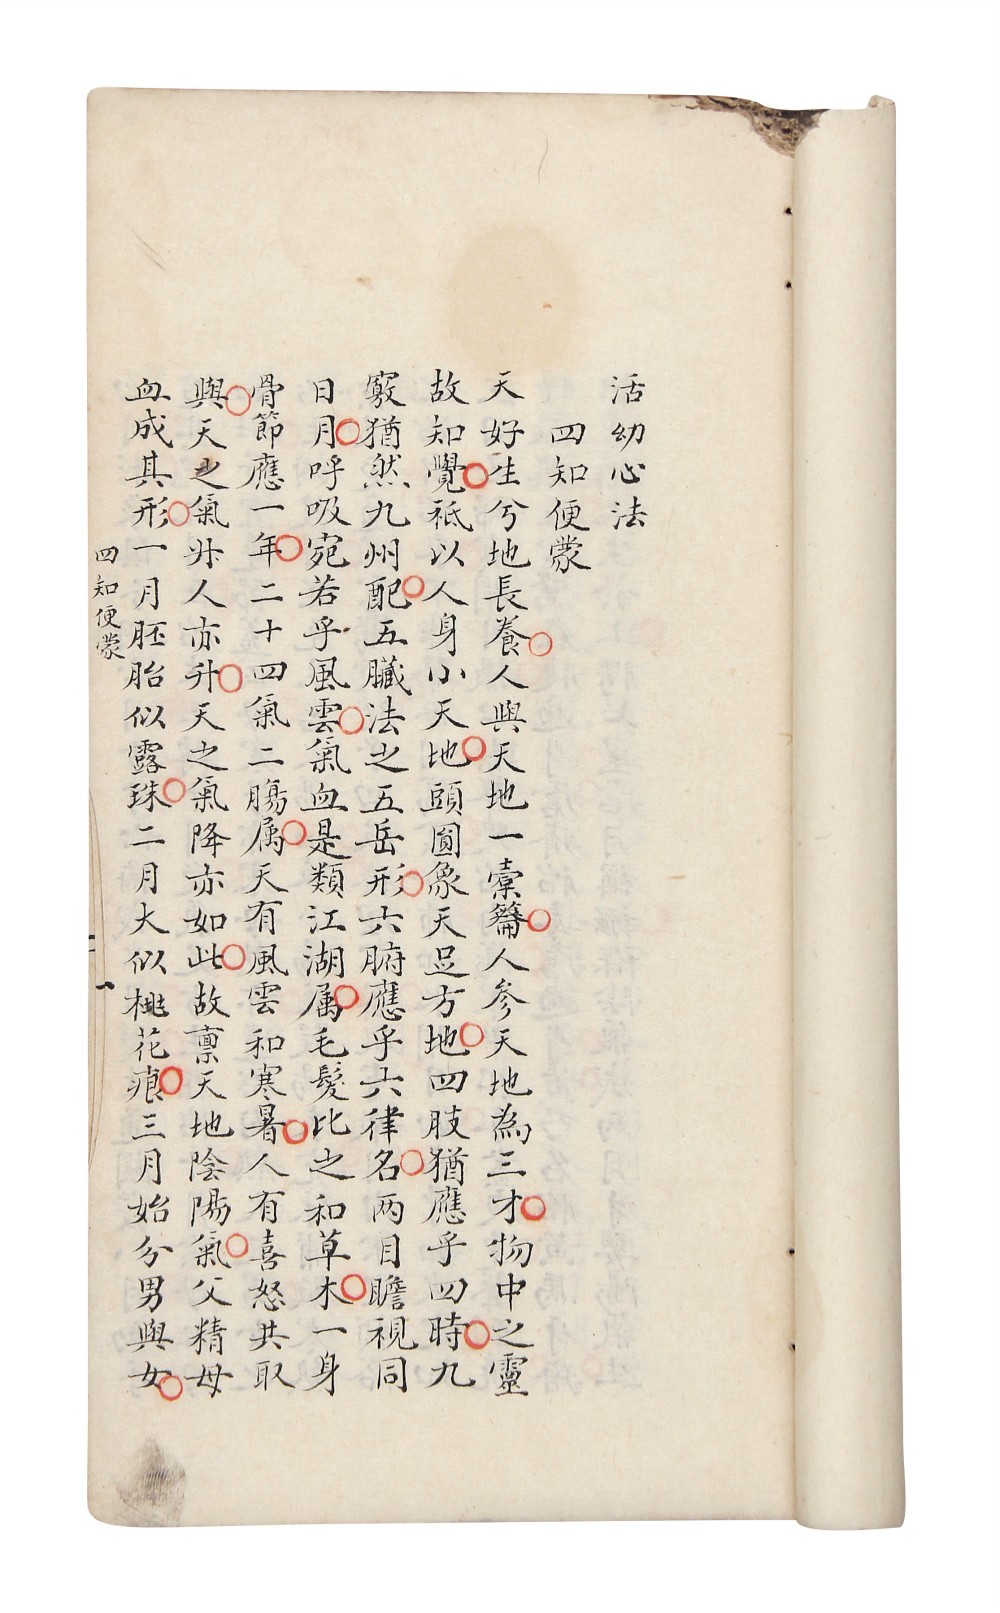 活幼心法
四知便蒙
天好生兮地長養人與天地一橐籥人參天地為三才物中之靈
故知覺祗以人身小天地頭圓象天足方地四肢猶應乎四時九
竅猶然九州配五臟法之五岳形六腑應乎六律名两目瞻視同
日月呼吸宛若乎風雲氣血是類江湖属毛髮比之和草木一身
骨節應一年二十四氣二腸属天有風雲和寒暑人有喜怒共取
與天之氣升人亦升天之氣降亦如此故禀天地陰陽氣父精母
血成其形一月胚胎似露珠二月大似桃花痕三月始分男與女
四知便蒙 一